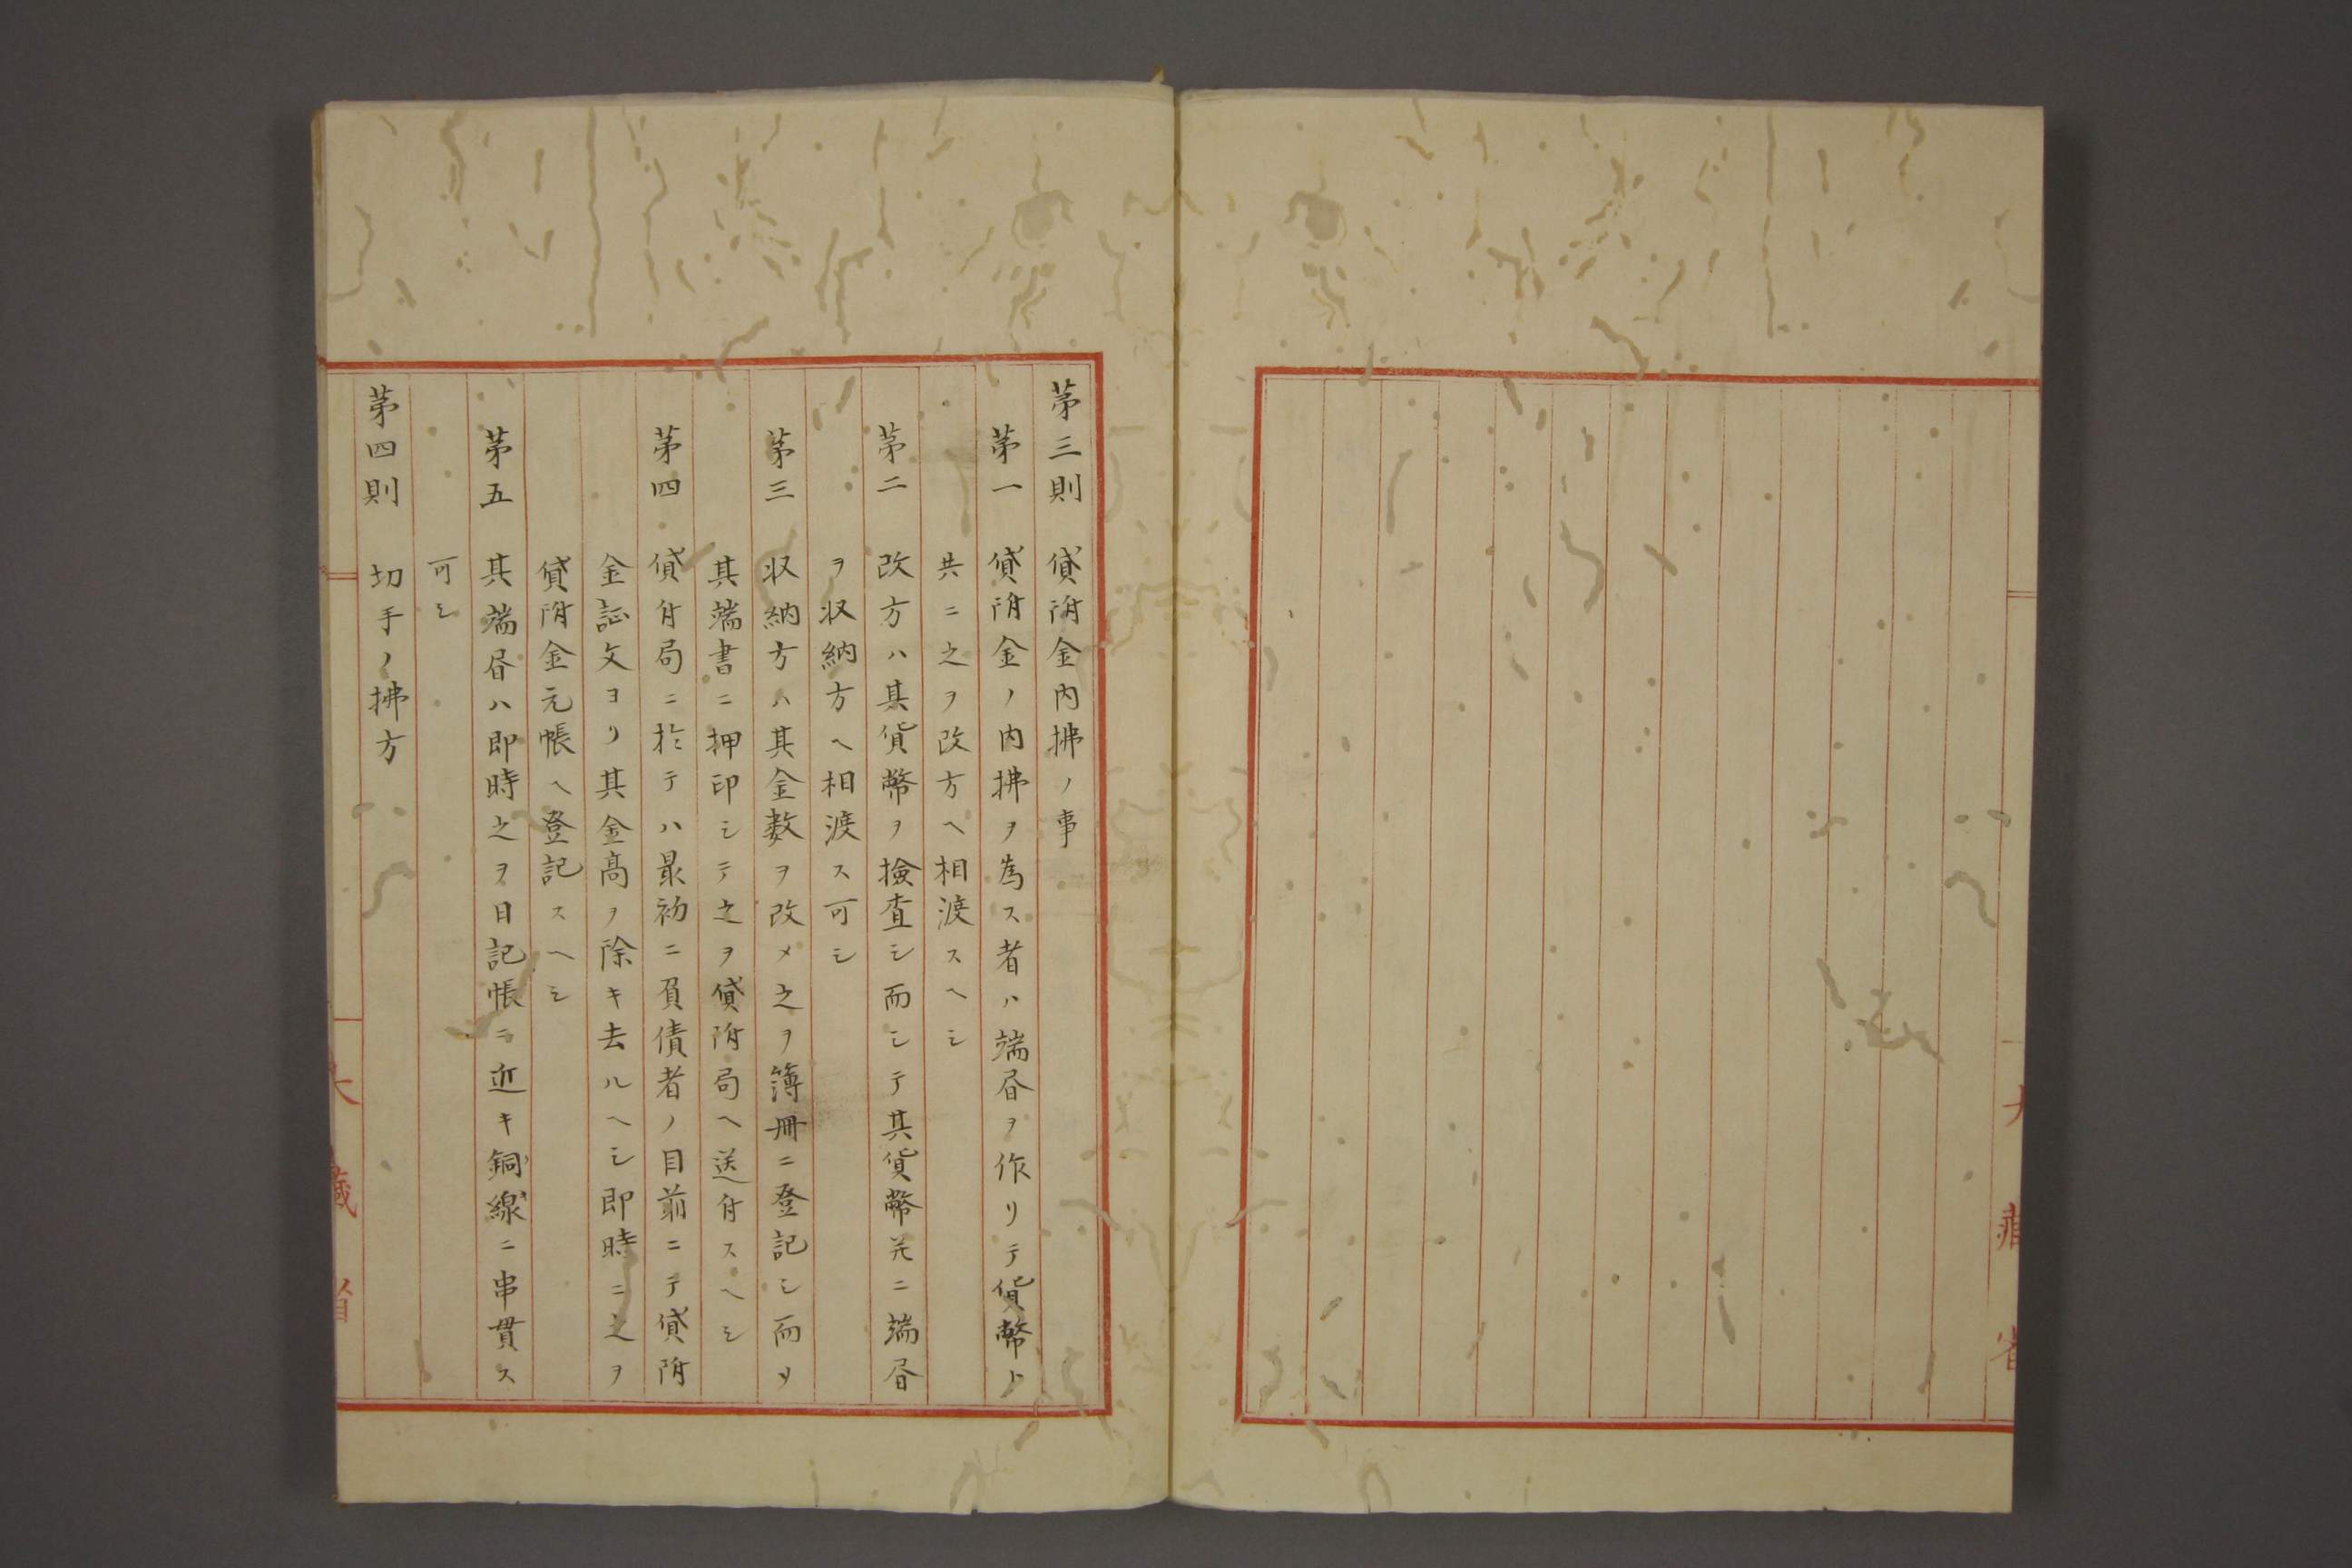 大藏省
茅三則　貸附金内拂ノ事
茅一　貸附金ノ内拂ヲ為ス者ハ端昏ヲ作リテ貨幣ト
共ニ之ヲ改方ヘ相渡スヘシ
茅二　改方ハ其貨幣ヲ撿査シ而シテ其貨幣并ニ端昏
ヲ収納方ヘ相渡ス可シ
茅三　収納方ハ其金数ヲ改メ之ヲ簿冊ニ登記シ而〆
其端書ニ押印シテ之ヲ貸附局ヘ送付スヘシ
茅四　貸付局ニ於テハ最初ニ負債者ノ目前ニテ貸附
金証文ヨリ其金高ヲ除キ去ルヘシ即時ニ之ヲ
貸附金元帳ヘ登記スヘシ
茅五　其端昏ハ即時之ヲ日記帳ニ近キ銅線ニ串貫ス
可シ
茅四則　切手ノ拂方
大藏省